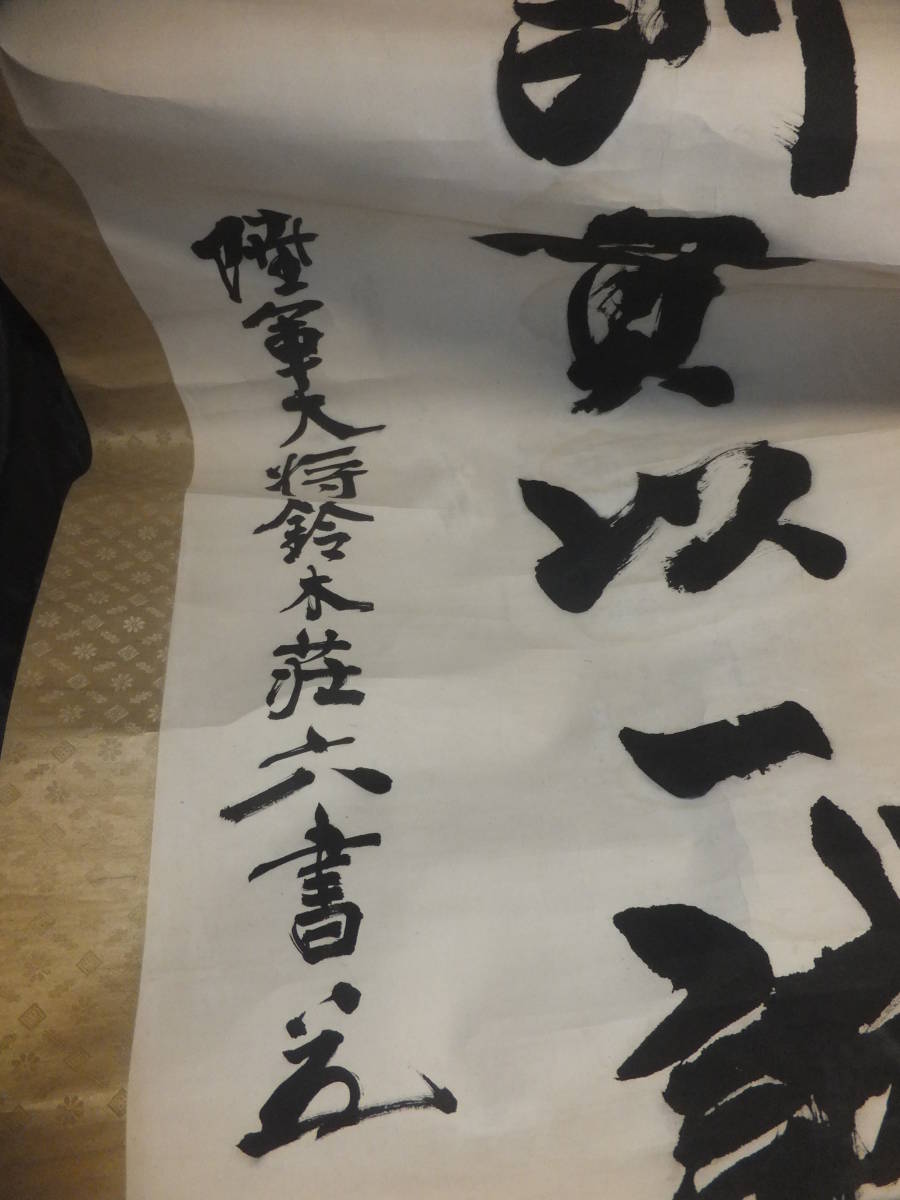 訓貫以一誠
陸軍大将鈴木荘六書